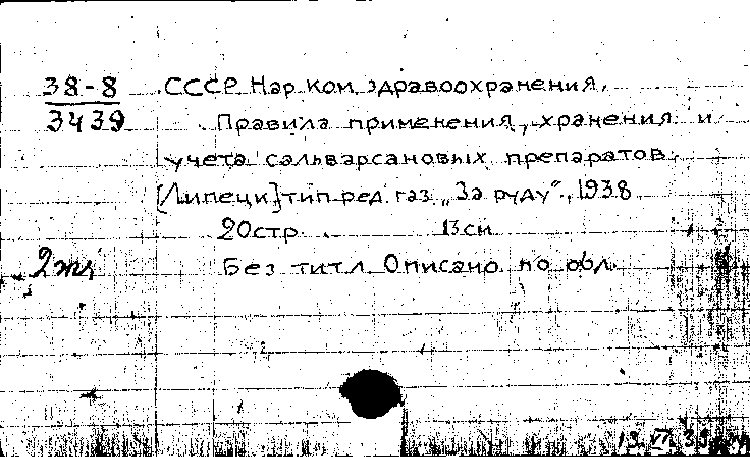 38-8
3439
СССР Нар. Ком. здравоохранения.
Правила применения, хранения и
учета сальварсановых препаратов.
[Липецк] тип. ред. газ. „За руду“, 1938
20 стр. 13 см
Без титл. Описано по обл.
13. VI. 39